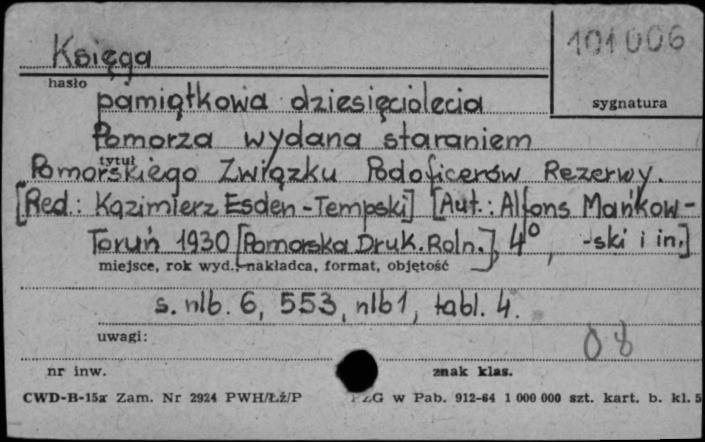 Księga
101006
hasło
sygnatura
pamiątkowa dziesięciolecia
Pomorza wydana staraniem
tytuł
Pomorskiego Związku Podoficerów Rezerwy.
[Red.: Kazimierz Esden-Tempski] [Aut.: Alfons Mańkow-
Toruń 1930 [Pomorska Druk. Roln.], 4°, -ski i in.]
miejsce, rok wyd., nakładca, format, objętość
s. nlb. 6, 553, nlb 1, tabl. 4.
uwagi:
08
nr inw.
znak klas.
CWD-B-15a Zam. Nr 2924 PWH/Łż/P
PZG w Pab. 912-64 1 000 000 szt. kart. b. kl. 5